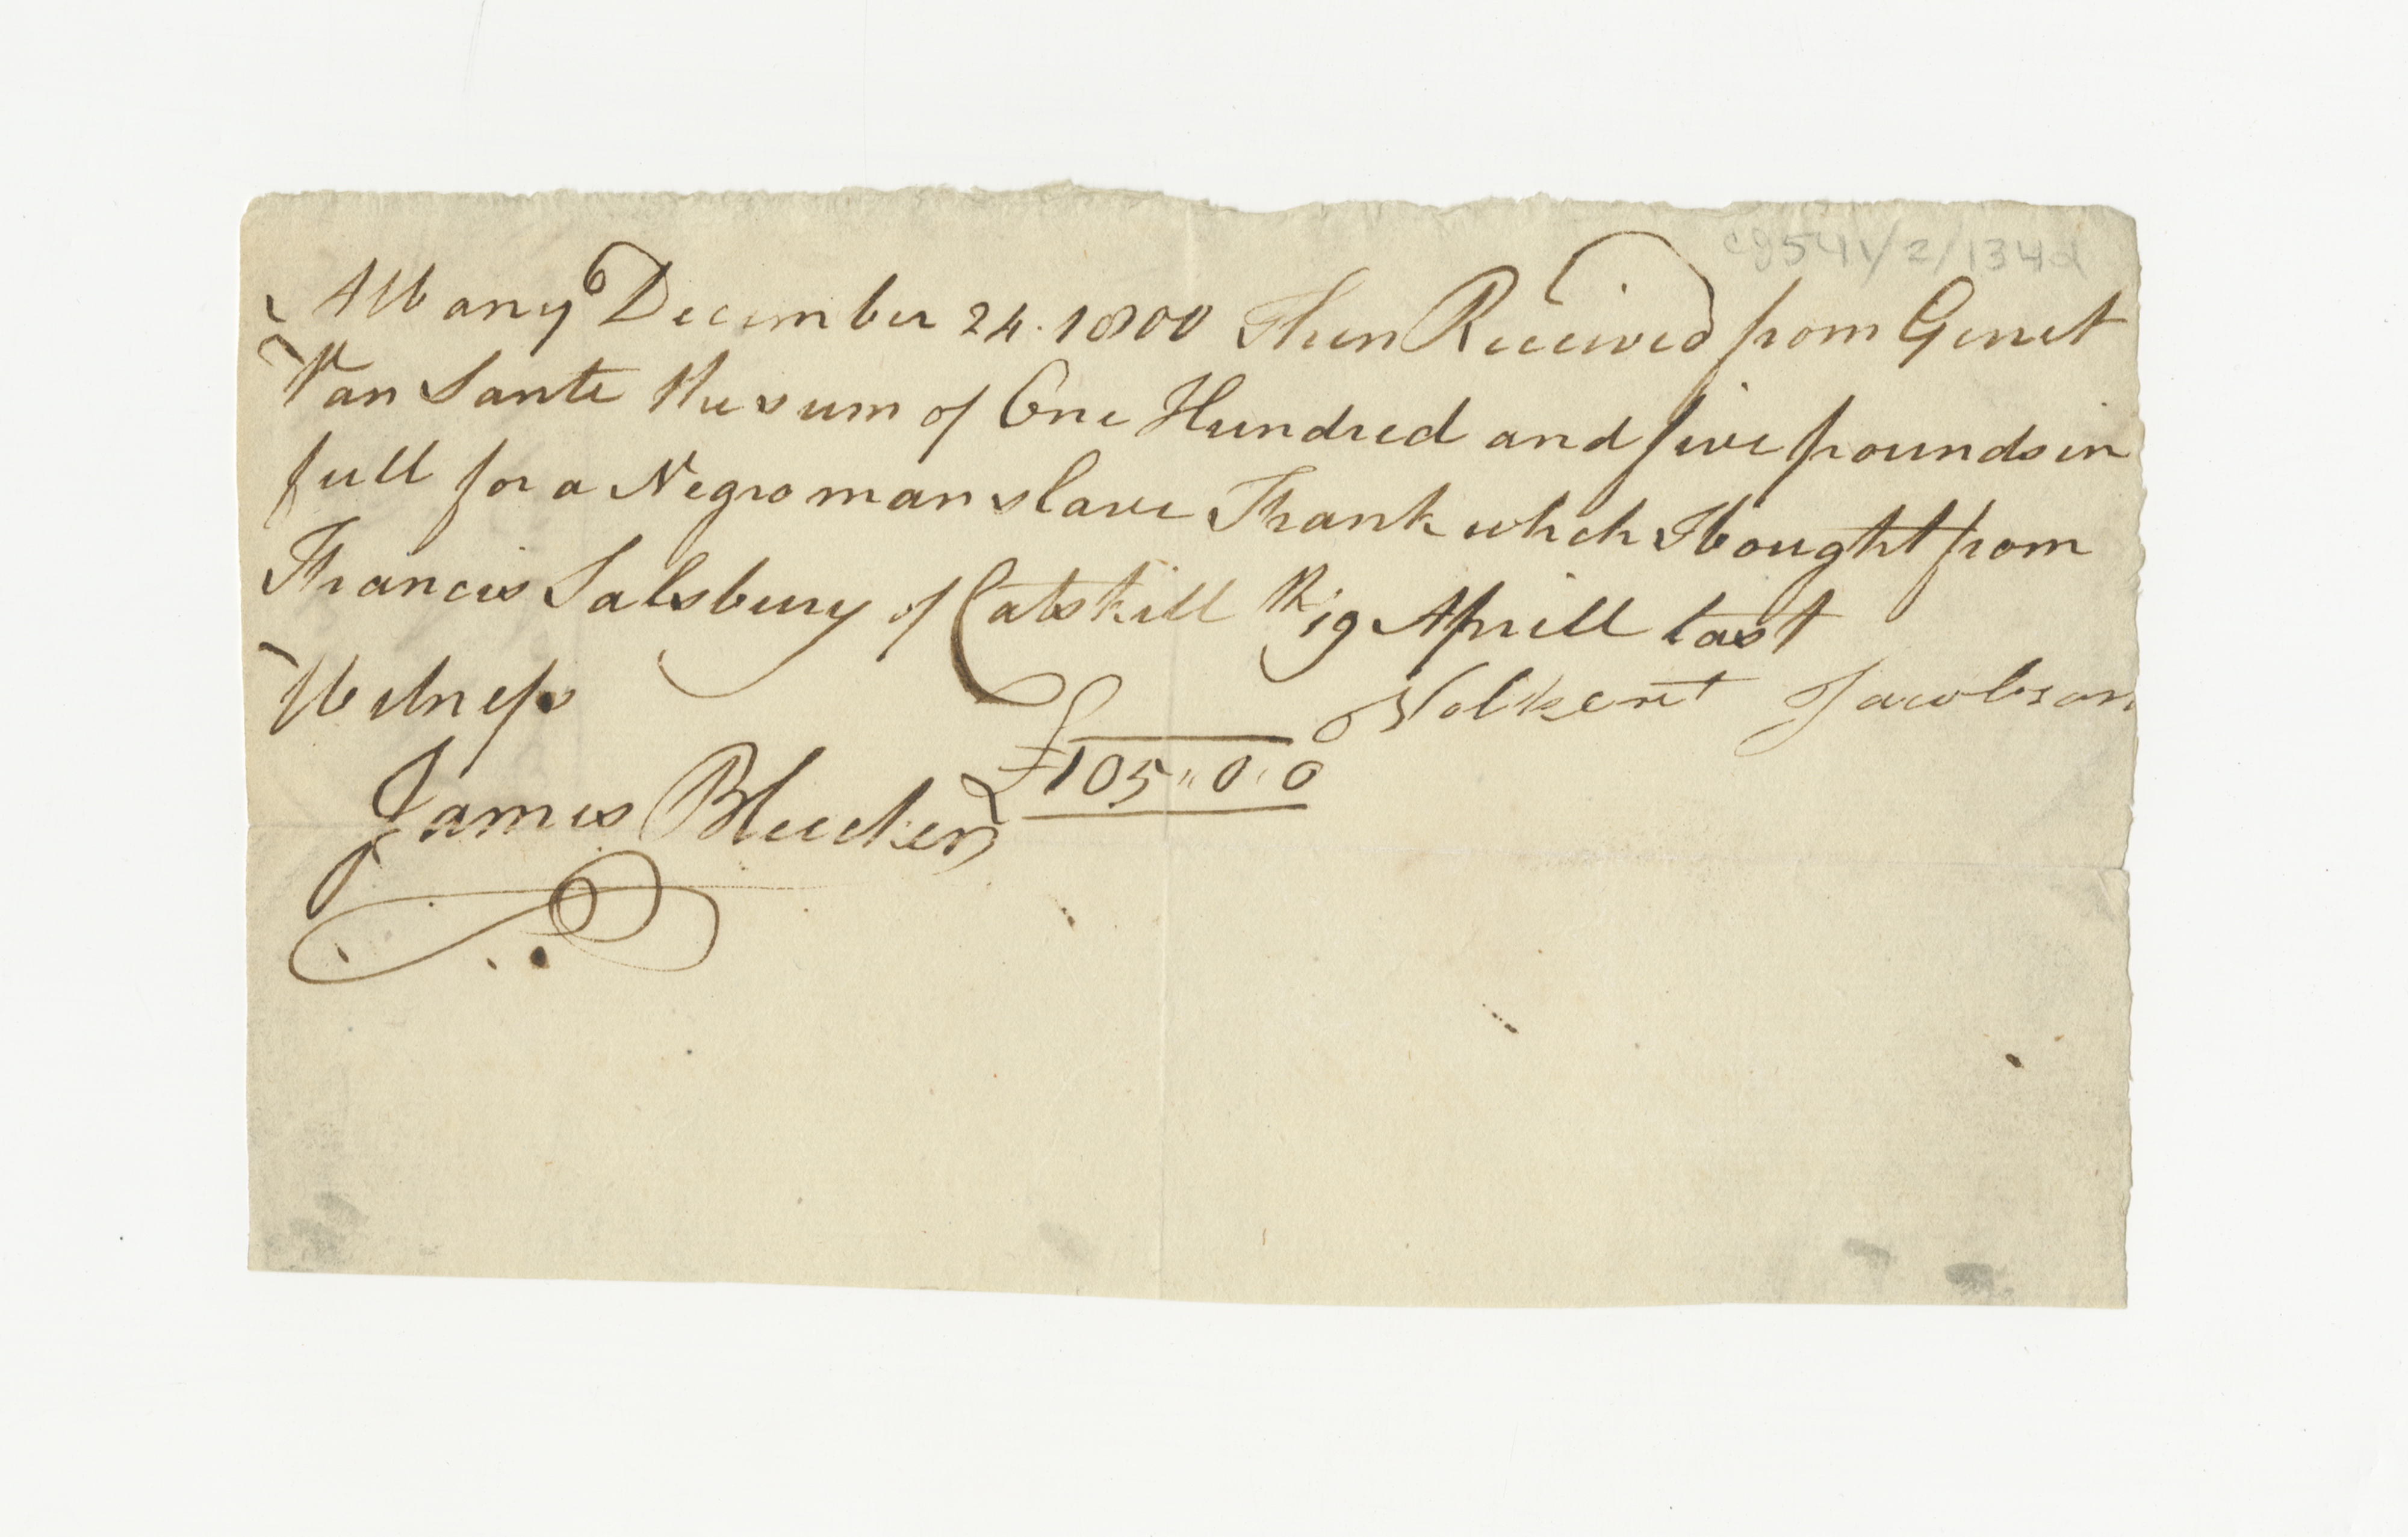 cg541/2/134d
Albany December 24. 1800 Then Received from Gerret
Van Sante the sum of One Hundred and five pounds in
full for a Negro man slave Frank which I bought from
Francis Salsbury of Catskill the 19 Aprill last
Witness Volkert Jacobson
£105 " 0 " 0
James Bleecker